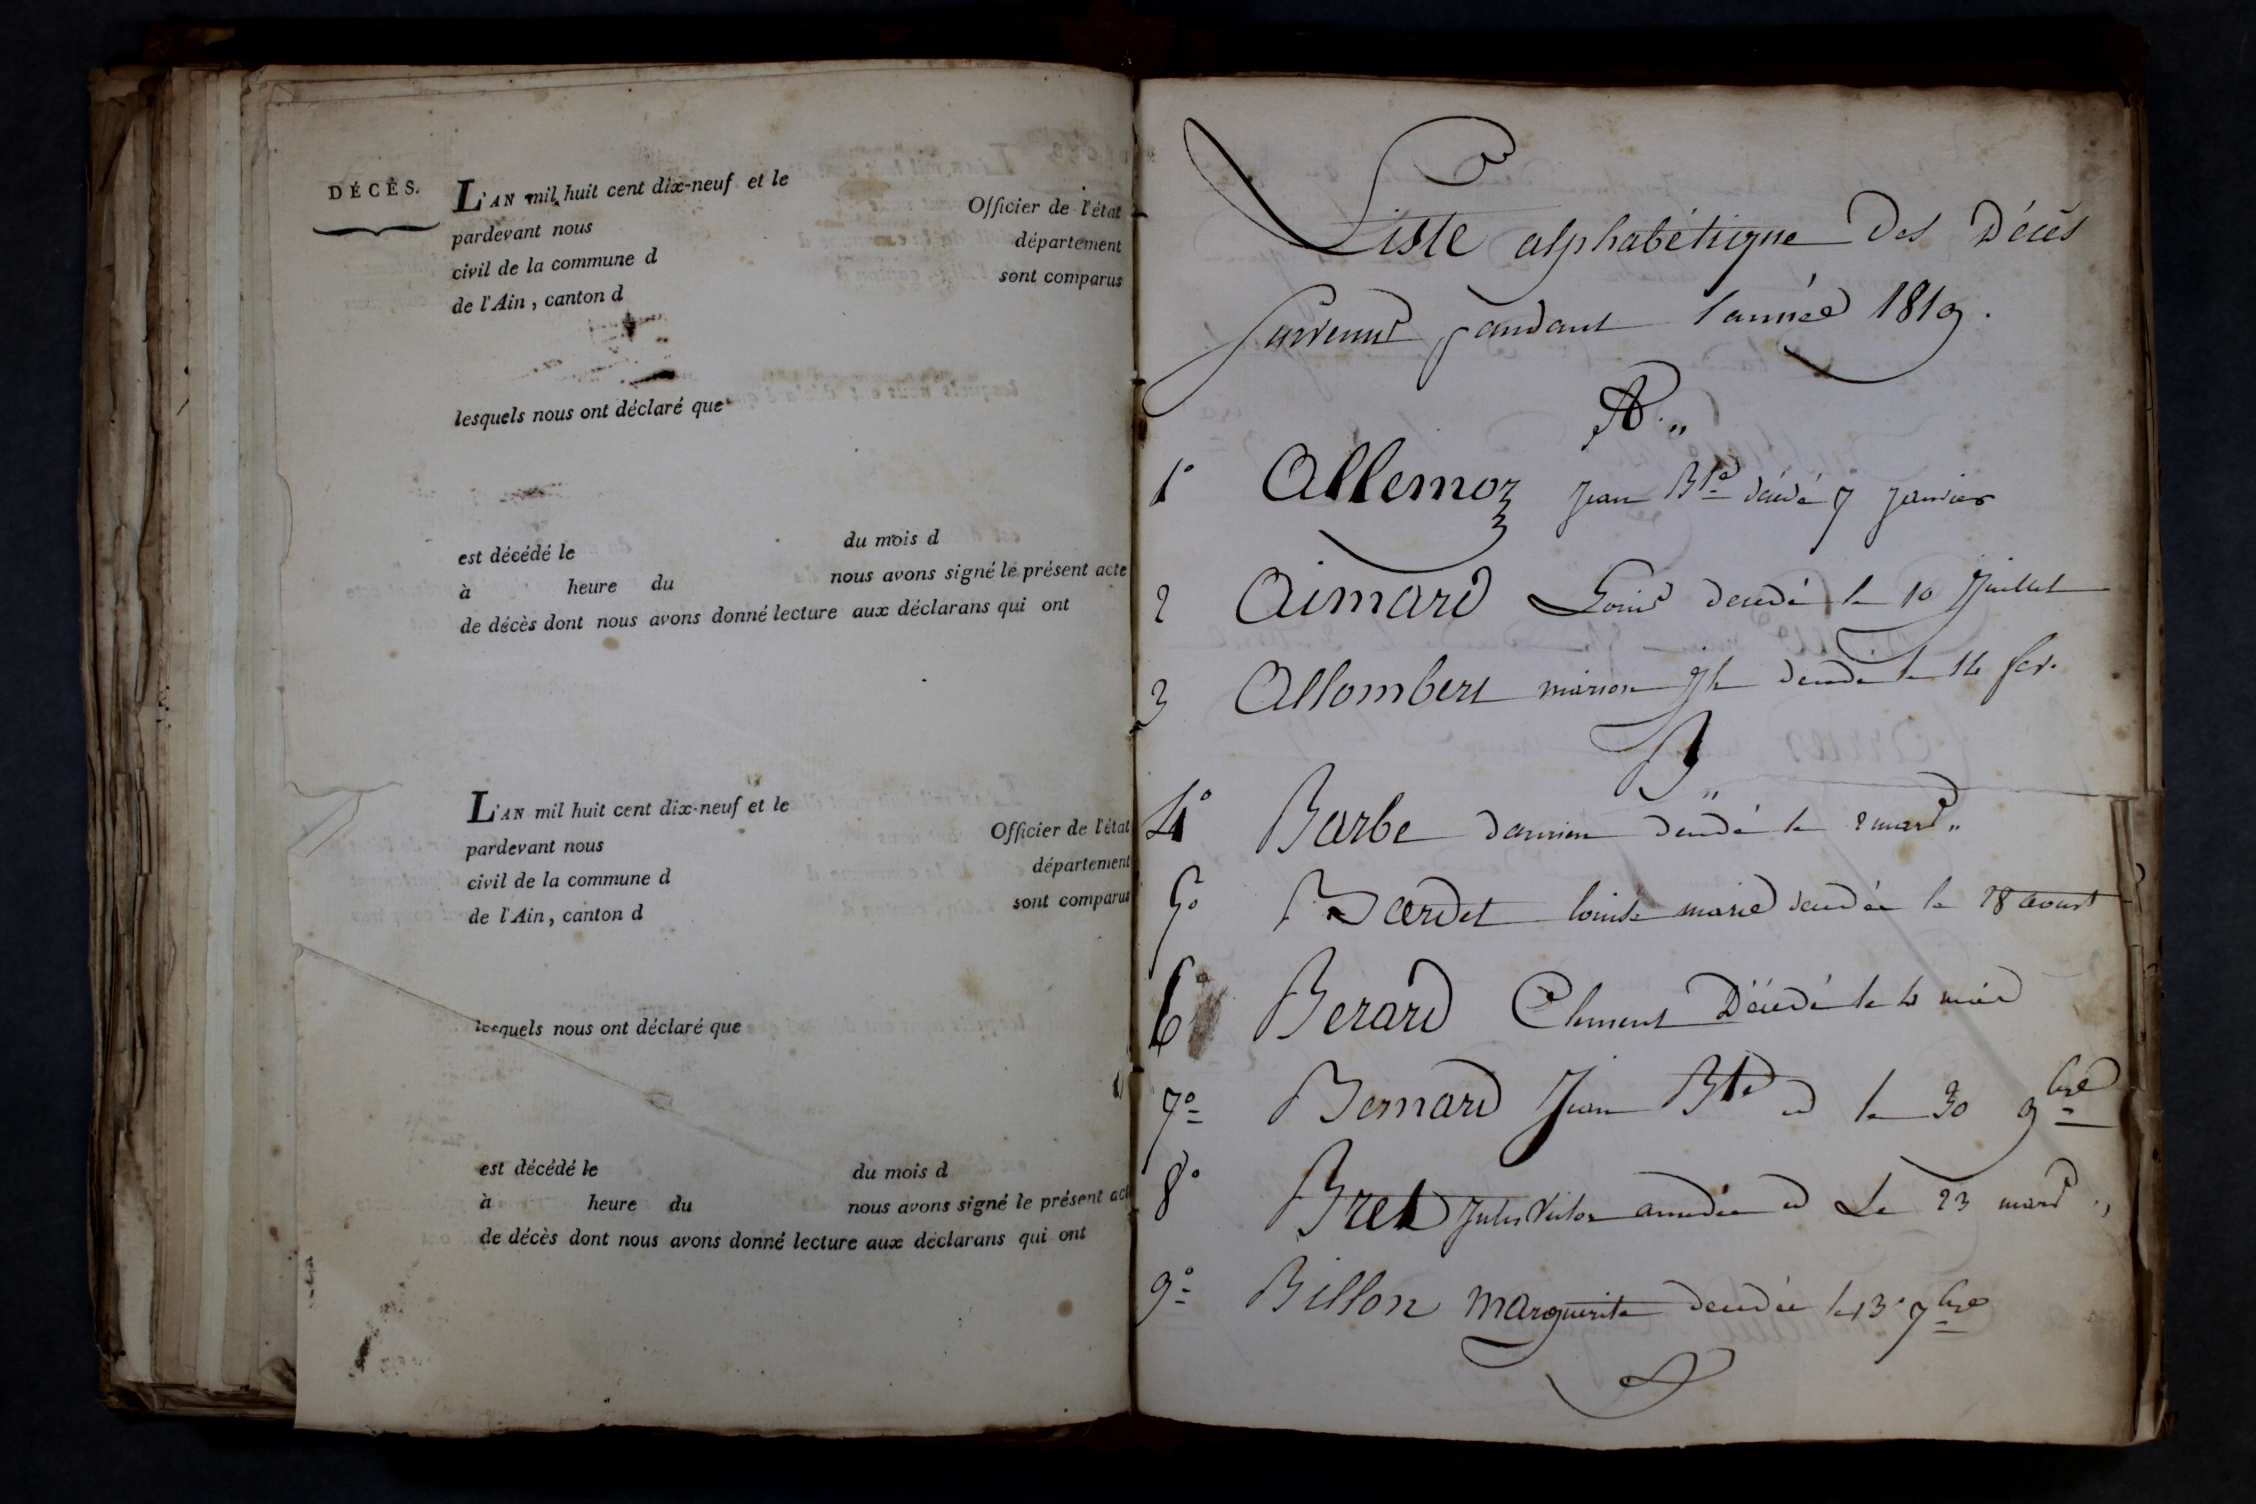 DÉCÈS.
L'AN mil huit cent dix-neuf et le
pardevant nous Officier de l'état
civil de la commune d département
de l'Ain, canton d sont comparus
lesquels nous ont déclaré que
est décédé le du mois d
à heure du nous avons signé le présent acte
de décès dont nous avons donné lecture aux déclarans qui ont
L'AN mil huit cent dix-neuf et le
pardevant nous Officier de l'état
civil de la commune d département
de l'Ain, canton d sont comparus
lesquels nous ont déclaré que
est décédé le du mois d
à heure du nous avons signé le présent acte
de décès dont nous avons donné lecture aux déclarans qui ont
Liste alphabétique des Décès
survenus pandant l'année 1819.
A.
1° Allemoz Jean Bte décédé 7 janvier
2 Aimard Louis decedé le 10 Juillet
3 Allombert decedé le 14 fev.
B
4° Barbe damien decédé le 2 mars
5° Bardet louise marie decedée le 28 aoust
6° Berard Clement Décedé le 4
7° Bernard Jean Bte d le 30 9bre
8° Bret Jules Victor amedée d Le 23 mars
9° Billon marguerite decedée le 13 7bre